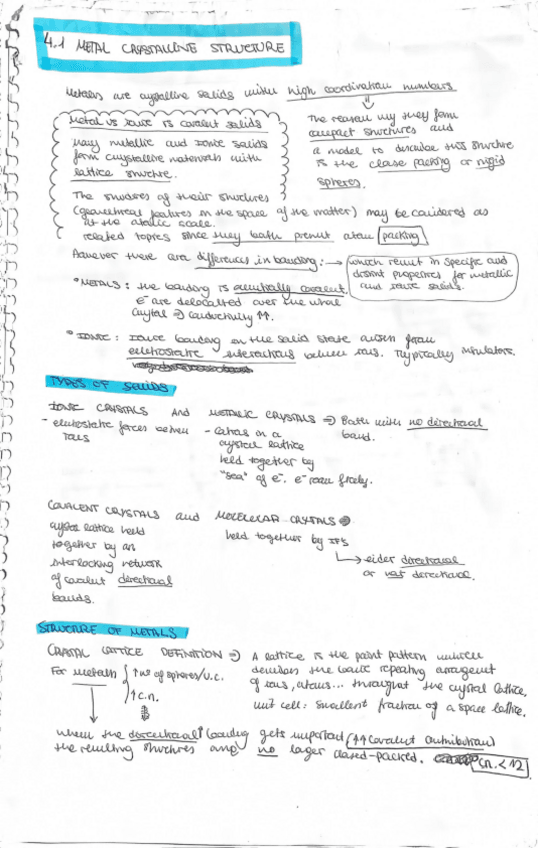 4.1 METAL CRYSTALLINE STRUCTURE
Metals are crystalline solids with high coordination numbers
Metal vs Ionic vs covalent solids
Many metallic and Ionic solids
form crystalline materials with
lattice structure.
The reason why they form
compact structures and
a model to describe this structure
is the close packing or rigid
spheres.
The studies of their structures
(geometrical features in the space of the matter) may be considered as
at the atomic scale.
related topics since they both present atom packing
However there are differences in bonding: → which result in specific and
distint properties for metallic
and ionic solids.
• METALS: the bonding is covalent.
e⁻ are delocalted over the whole
crystal ⇒ conductivity ↑↑.
• IONIC: Ionic bonding in the solid state arisen from
electrostatic interactions between ions. Typically insulators.
TYPES OF SOLIDS
IONIC CRYSTALS AND METALLIC CRYSTALS ⇒ Both with no directional
bond.
- electrostatic forces between
ions
- Cations in a
crystal lattice
held together by
"sea" of e⁻. e⁻ roam freely.
COVALENT CRYSTALS and MOLECULAR CRYSTALS
crystal lattice held
together by an
interlocking network
of covalent directional
bonds.
held together by IFS
→ eider directional
or not directional.
STRUCTURE OF METALS
CRYSTAL LATTICE DEFINITION ⇒ A lattice is the point pattern which
describes the basic repeating arragement
of ions, atoms... throughout the crystal lattice.
unit cell: smallest fraction of a space lattice.
For metals { ↑ nº of spheres/u.c.
↑ c.n.
when the directional bonding gets important (↑↑ covalent contribution)
the resulting structures are no longer closed-packed. cn. < 12